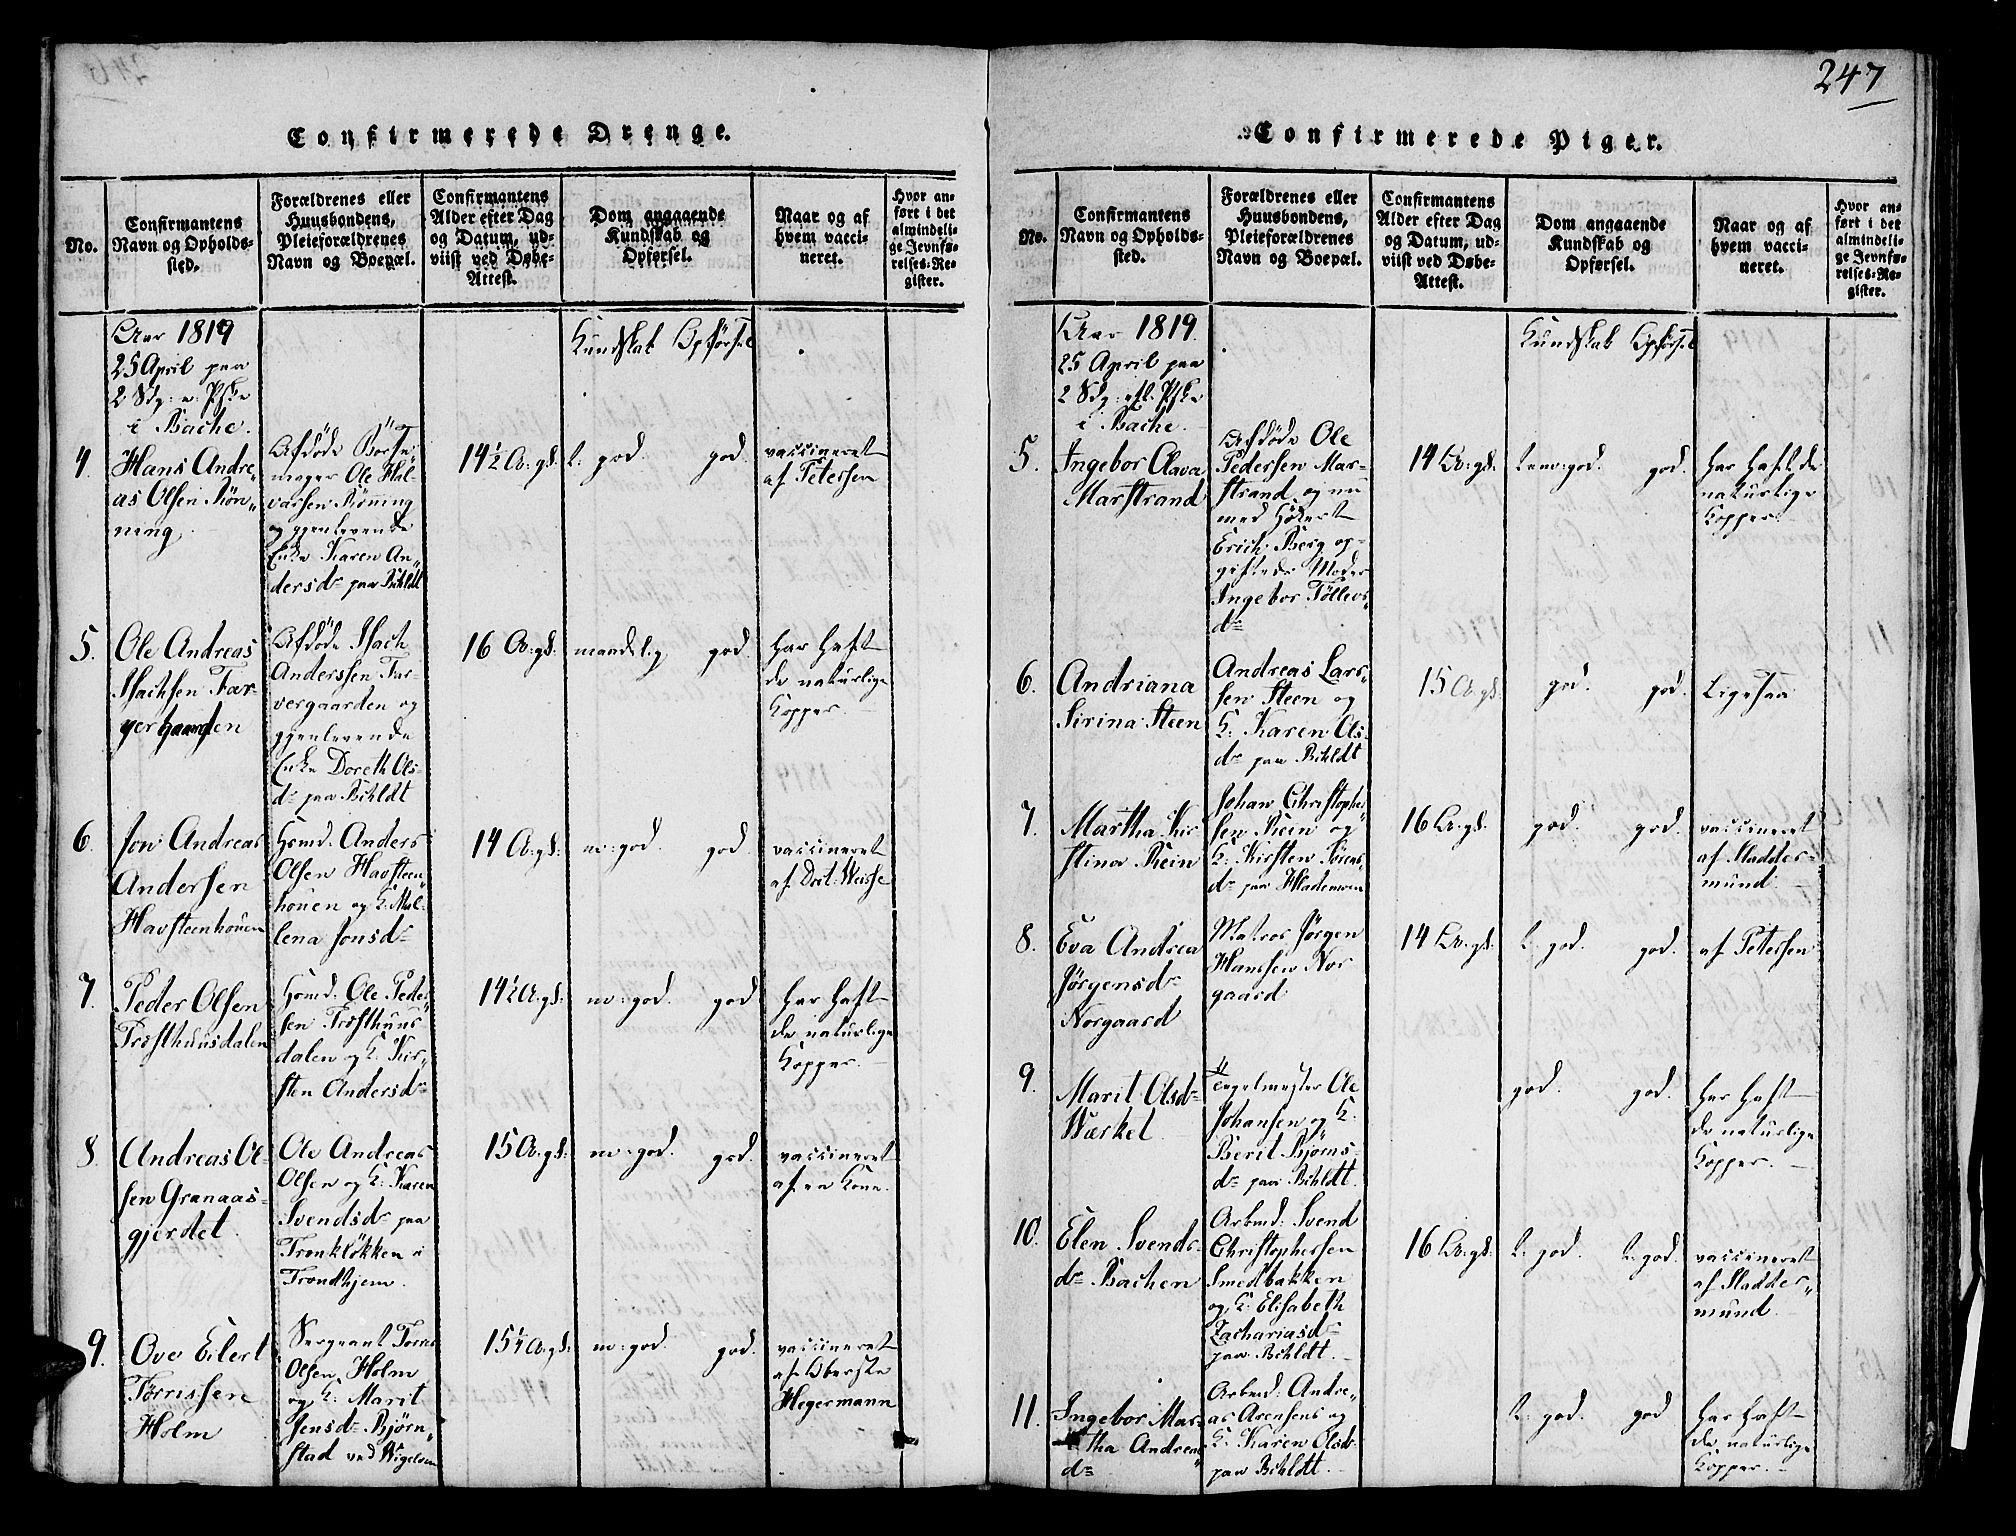 247
Confirmerede Drenge.
No.
Confirmantens
Navn og Opholds-
sted.
Forældrenes eller
Huusbondens,
Pleieforældrenes
Navn og Boepæl.
Confirmantens
Alder efter Dag
og Datum, ud-
viist ved Døbe-
Attest.
Dom angaaende
Kundskab og
Opførsel.
Naar og af
hvem vacci-
neret.
Hvor an-
ført i det
almindeli-
ge Jevnfø-
relses-Re-
gister.
Aar 1819
25 April paa
2 Sdg: e: Pske
i Bache.
Kundskab Opførsel
4.
Hans Andre„
as Olsen Røn„
ning
Afdøde
Ole Hal-
varsen Røning
og gjenlevende
Enke Karen An„
dersdr paa Bihldt
14½ A: gl:
t: god. god.
vaccineret
af Petersen
5.
Ole Andreas
Isachsen Far-
Afdøde Isach
Anderssen Far-
vergaarden og
gjenlevende
Enke Doreth Ols-
dr paa Bihldt
16 A: gl:
maadelig god.
har haft
de naturlige
Kopper.
6.
Jon Andreas
Andersen
Havsteenhouen
Hsmd. Anders
Olsen Havsteen„
houen og K: Mal-
lena Jonsdr
14 A: gl:
nv: god. god.
vaccineret
af Doct: Weisse
7.
Peder Olsen
Præsthuusdalen
Hsmd. Ole Peder„
sen Præsthuus
dalen og K: Kir„
sten Andersdr
14½ A: gl:
nv: god. god
har haft
de naturlige
Kopper.
8.
Andreas Ol-
sen Granaas-
gjerdet
Ole Andreas
Olsen og K: Karen
Svendsdr paa
Tronkløkken i
Trondhjem.
15 A: gl:
nv: god. god.
vaccineret
af en Kone.
9.
Ove Eilert
Torrissen
Holm
Sergeant Torris
Olsen Holm
og K: Marit
Jensdr Bjørn„
stad ved Wigelsm
15¼ A: gl:
nv: god. god.
vaccineret
af Oberste
Hegermann
Confirmerede Piger.
No.
Confirmantens
Navn og Opholds-
sted.
Forældrenes eller
Huusbondens,
Pleieforældrenes
Navn og Boepæl.
Confirmantens
Alder efter Dag
og Datum, ud-
viist ved Døbe-
Attest.
Dom angaaende
Kundskab og
Opførsel.
Naar og af
hvem vacci-
neret.
Hvor an-
ført i det
almindeli-
ge Jevnfø-
relses-Re-
gister.
Aar 1819.
25 April paa
2 Sdg: eft. Pske
i Bache.
Kundskab Opførsel
5.
Ingebor Olava
Marstrand
Afdøde Ole
Pedersen Mar-
strand og nu
med
Erich Berg op-
giftede Moder
Ingebor Tøllevs„
dr
14 A: gl:
god. god.
har haft de
naturlige
Kopper
6.
Andriana
Sirina Steen
Andreas Lars„
sen Steen og
K: Karen Ols-
dr paa Bihldt
15 A: gl.
god. god.
Ligesaa
7.
Martha Kir
stina Rein
Johan Christopher„
sen Rein og
K: Kirsten Sørens„
dr paa Hlademoen
16 A: gl.
god. god.
vaccineret
af Sladder-
mund.
8.
Eva Andrea
Jørgensdr
Norgaard
Matros Jørgen
Hanssen Nor
gaard
14 A: gl:
t: god. god.
af Petersen
9.
Marit Olsdr
Wærket
Tegelmester Ole
Johansen og K:
Berit Bjørns-
dr paa Bihldt.
god. god.
har haft
de naturlige
Kopper.
10.
Elen Svends-
dr Bachen
Arbmd: Svend
Christophersen
Smedbakken
og K. Elisabeth
Zachariasdr
paa Bihldt.
16 A: gl:
t: god. t: god.
vaccineret
af Sladder„
mund
11.
Ingebor Mar-
tha Andreas„
dr
Arbmd: Andre„
as Arensens og
K: Karen Olsdr
paa Bihldt.
t: god. god
har haft
de naturlige
Kopper.